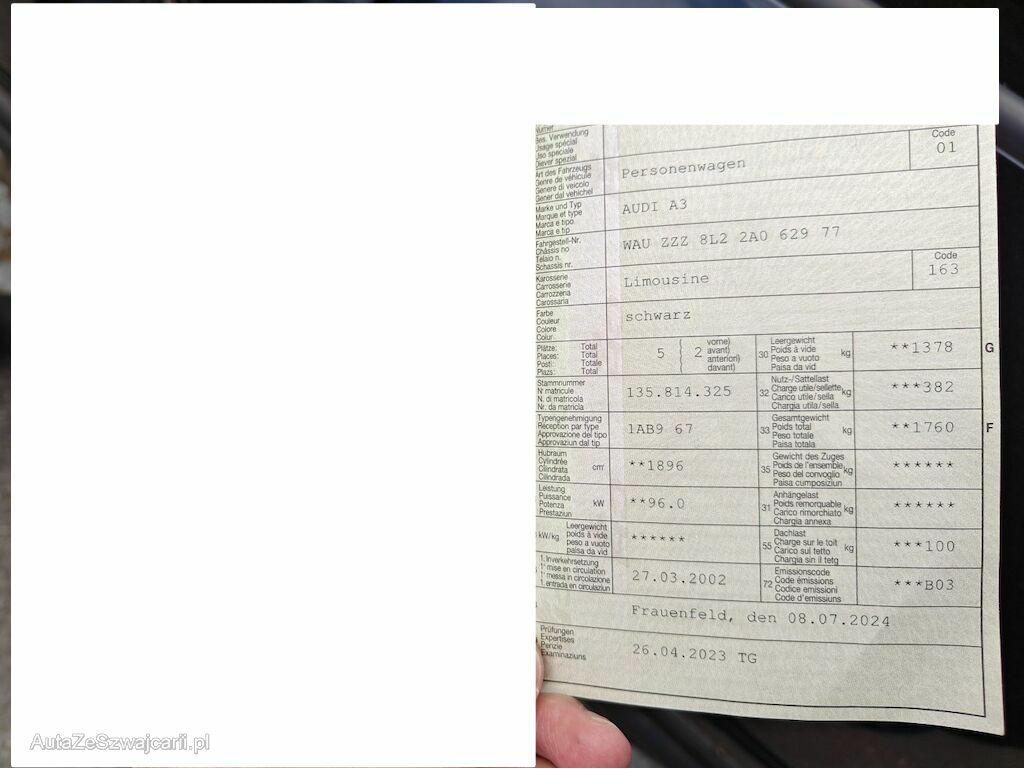 Numer
Bes. Verwendung
Usage spécial
Uso speciale
Diever spezial
Art des Fahrzeugs
Genre de véhicule
Genere di veicolo
Gener dal vehichel
Personenwagen
Code
01
Marke und Typ
Marque et type
Marca e tipo
Marca e tip
AUDI A3
Fahrgestell-Nr.
Châssis no
Telaio n.
Schassis nr.
WAU ZZZ 8L2 2A0 629 77
Karosserie
Carrosserie
Carrozzeria
Carossaria
Limousine
Code
163
Farbe
Couleur
Colore
Colur
schwarz
Plätze: Total
Places: Total
Posti: Totale
Plazs: Total
5
2
vorne)
avant)
anteriori)
davant)
30
Leergewicht
Poids à vide
Peso a vuoto
Paisa da vid
kg
**1378
G
Stammnummer
N° matricule
N. di matricola
Nr. da matricla
135.814.325
32
Nutz-/Sattellast
Charge utile/sellette
Carico utile/sella
Chargia utila/sella
kg
***382
Typengenehmigung
Réception par type
Approvazione del tipo
Approvaziun dal tip
1AB9 67
33
Gesamtgewicht
Poids total
Peso totale
Paisa totala
kg
**1760
F
Hubraum
Cylindrée
Cilindrata
Cilindrada
cm³
**1896
35
Gewicht des Zuges
Poids de l'ensemble
Peso del convoglio
Paisa cumposiziun
kg
******
Leistung
Puissance
Potenza
Prestaziun
kW
**96.0
31
Anhängelast
Poids remorquable
Carico rimorchiato
Chargia annexa
kg
******
kW/kg
Leergewicht
poids à vide
peso a vuoto
paisa da vid
******
55
Dachlast
Charge sur le toit
Carico sul tetto
Chargia sin il tetg
kg
***100
1. Inverkehrsetzung
1re mise en circulation
1a messa in circolazione
1. entrada en circulaziun
27.03.2002
72
Emissionscode
Code émissions
Codice emissioni
Code d'emissiuns
***B03
Frauenfeld, den 08.07.2024
Prüfungen
Expertises
Perizie
Examinaziuns
26.04.2023 TG
AutaZeSzwajcarii.pl